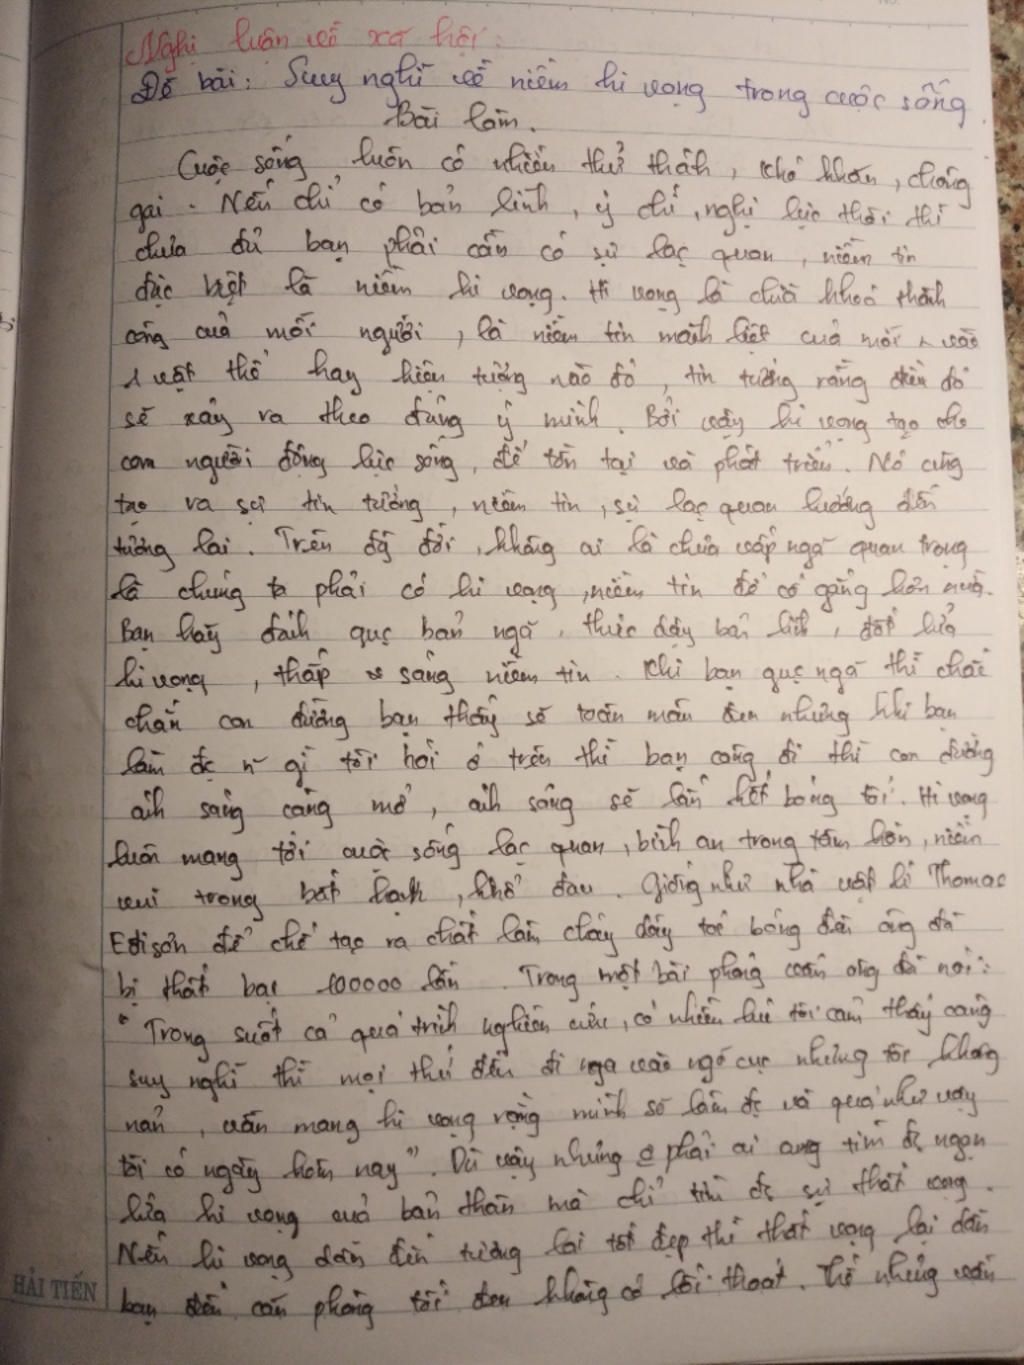 Nghị luận về xã hội:
Đề bài: Suy nghĩ về niềm hi vọng trong cuộc sống.
Bài làm.
Cuộc sống luôn có nhiều thử thách, khó khăn, chông
gai. Nếu chỉ có bản lĩnh, ý chí, nghị lực thôi thì
chưa đủ bạn phải cần có sự lạc quan, niềm tin
đặc biệt là niềm hi vọng. Hi vọng là chìa khoá thành
công của mỗi người, là niềm tin mãnh liệt của mỗi vào
1 vật thể hay hiện tượng nào đó, tin tưởng rằng điều đó
sẽ xảy ra theo đúng ý mình. Bởi vậy hi vọng tạo cho
con người động lực sống, để tồn tại và phát triển. Nó cũng
tạo ra sự tin tưởng, niềm tin, sự lạc quan hướng đến
tương lai. Trên đời, không ai là chưa vấp ngã quan trọng
là chúng ta phải có hi vọng, niềm tin để cố gắng hơn nữa.
Bạn hãy đánh gục bản ngã, thức dậy bản lĩnh, đốt lửa
hi vọng, thắp sáng niềm tin. Khi bạn gục ngã thì chắc
chắn con đường bạn thấy sẽ toàn màu đen nhưng khi bạn
làm đc n~ gì tôi nói ở trên thì bạn càng đi thì con đường
ánh sáng càng mở, ánh sáng sẽ lấn hết bóng tối. Hi vọng
luôn mang tới cuộc sống lạc quan, bình an trong tâm hồn, niềm
vui trong bất hạnh, khổ đau. Giống như nhà vật lí Thomas
Edison để chế tạo ra chất làm cháy dây tóc bóng đèn ông đã
bị thất bại 100000 lần. Trong một bài phỏng vấn ông đã nói:
"Trong suốt cả quá trình nghiên cứu, có nhiều lúc tôi cảm thấy càng
suy nghĩ thì mọi thứ đều đi vào ngõ cụt nhưng tôi không
nản, vẫn mang hi vọng rằng mình sẽ làm đc và quả như vậy
tôi có ngày hôm nay". Dù vậy nhưng phải ai cũng tìm đc ngọn
lửa hi vọng của bản thân mà chỉ tìm đc sự thất vọng.
Nếu hi vọng dẫn đến tương lai tốt đẹp thì thất vọng lại dẫn
bạn đến căn phòng tối đen không có lối thoát. Thế nhưng vẫn
HẢI TIẾN